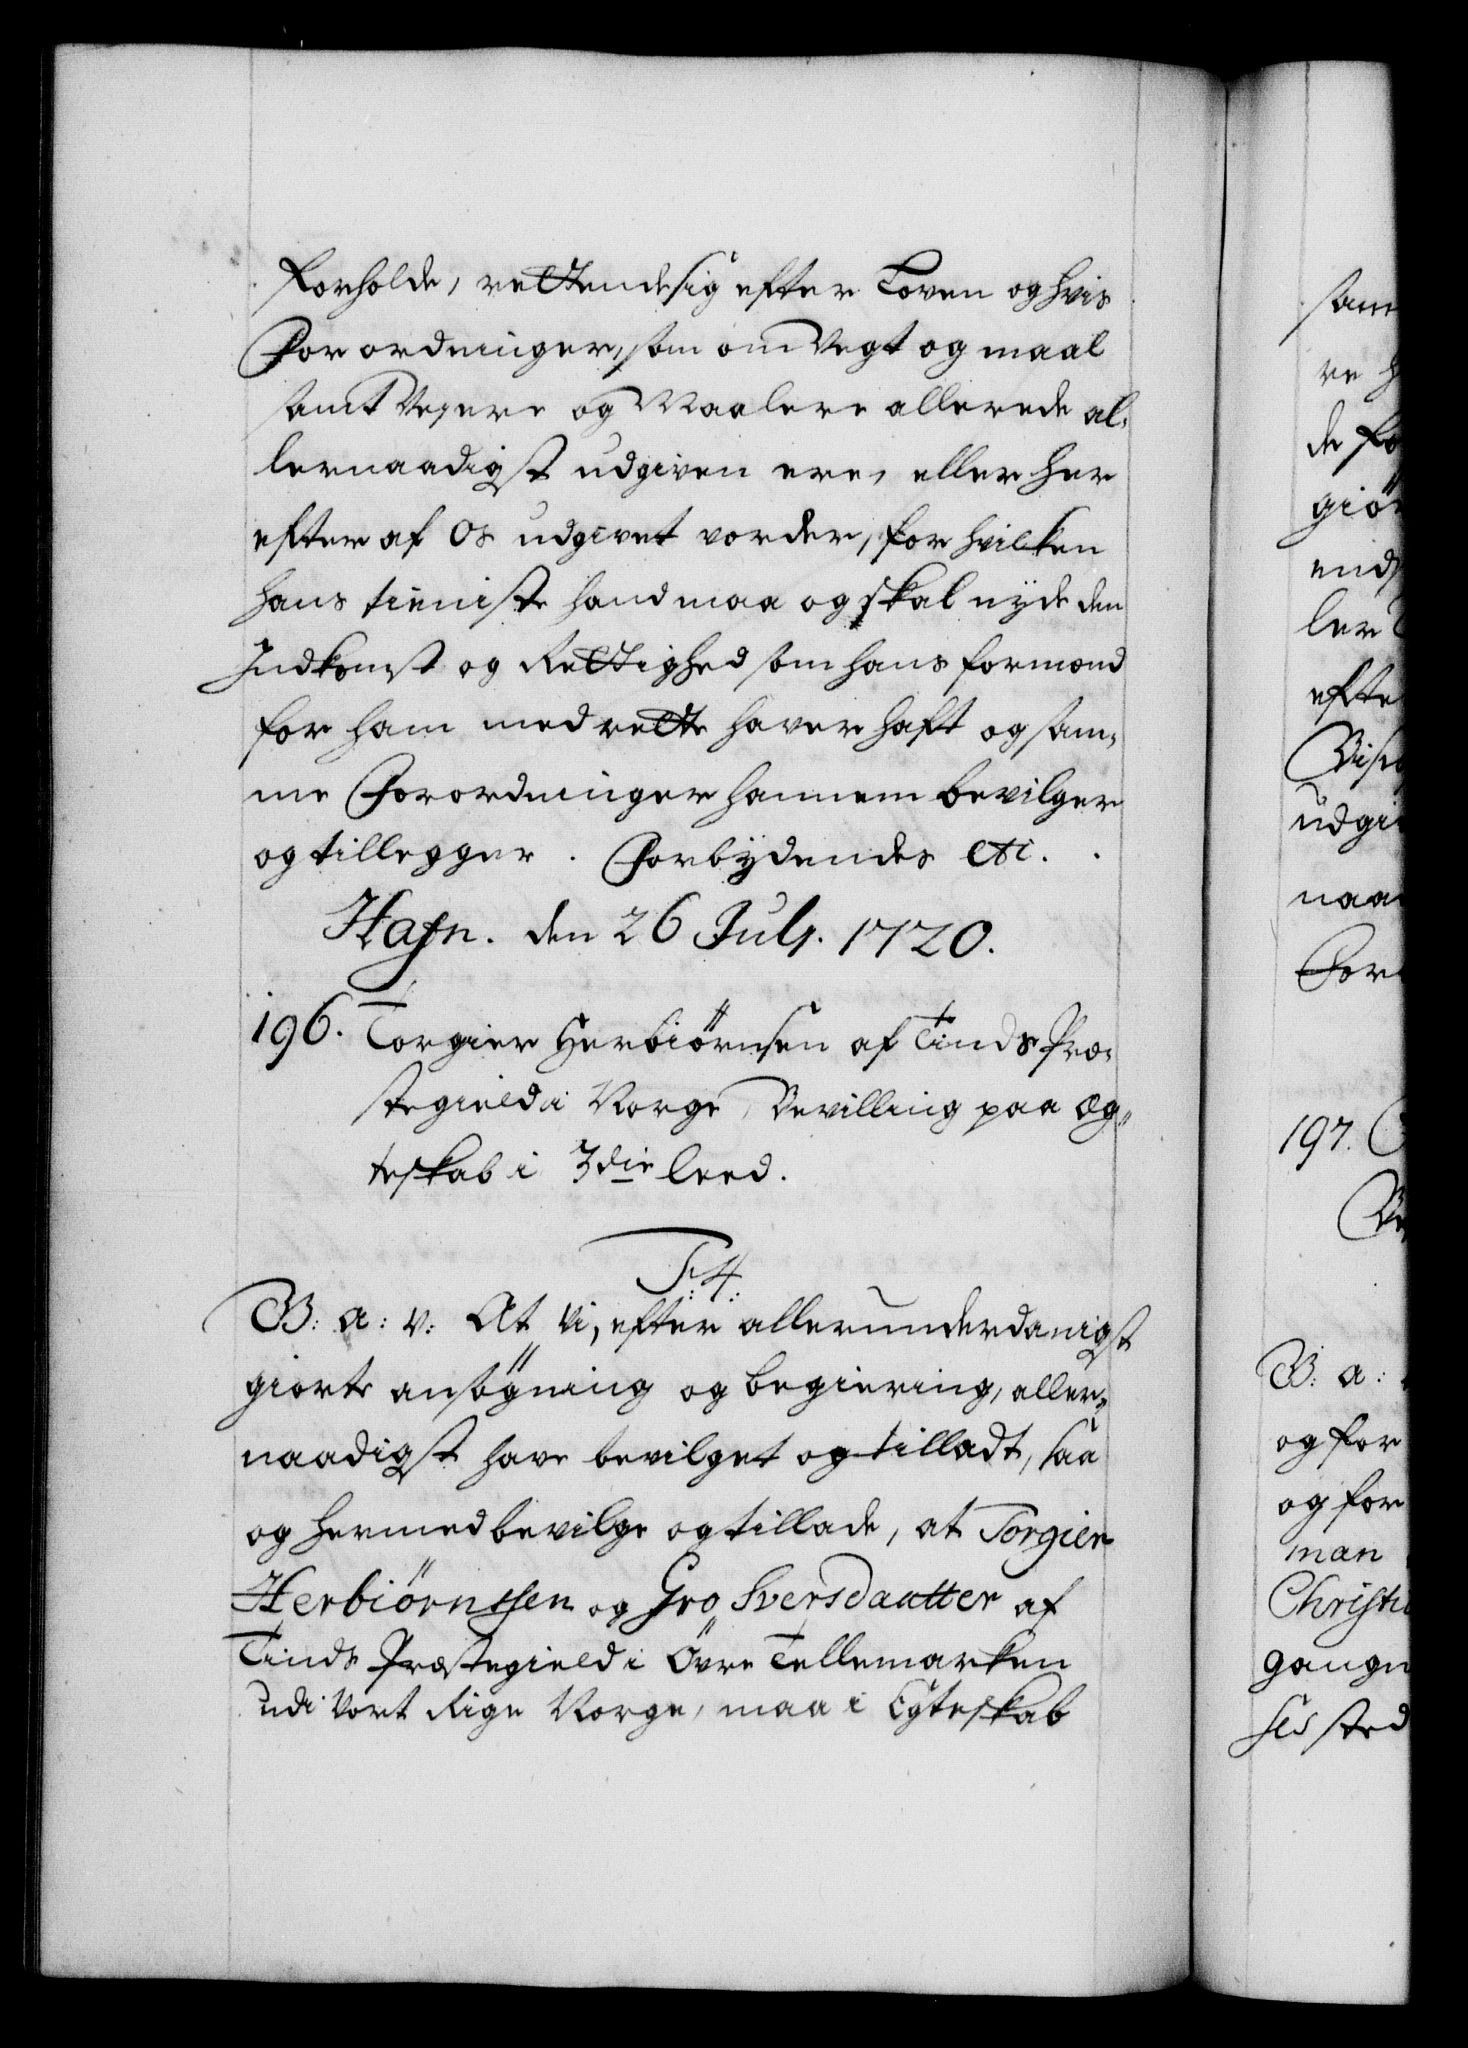 forholde, rettendesig efter Loven og hvis
Forordninger, som om Vegt og maal
samt Vejere og Maalere allerede al,
lernaadigst udgiven ere, eller her
efter af Os udgivet vorder, for hvilken
hans tieniste hand maa og skal nyde den
Indkomst og Rettighed som hans formænd
for ham med rette haver haft og sam,
me Forordninger hannem bevilger
og tillegger. Forbydendes etc.
Hafn. den 26 Julj. 1720.
196. Torgier Herbiörnsen af Tinds Præ,
stegield i Norge, Bevilling paa Æg,
teskab i 3die leed.
F: 4:
G: a: v: At Vi, efter allerunderdanigst
giorte ansögning og begiering, aller,
naadigst have bevilget og tilladt, saa
og hermed bevilge og tillade, at Torgier
Herbiörnssen og Gro Sversdaatter af
Tinds Præstegield i Övre Tellemarken
udi Vort Rige Norge, maa i Egteskab
sam
re h
de fo
giör
ends
ler
efte
udgi
naa
For
197.
G: a:
og for
og for
man
Christi
gangn
ses sted